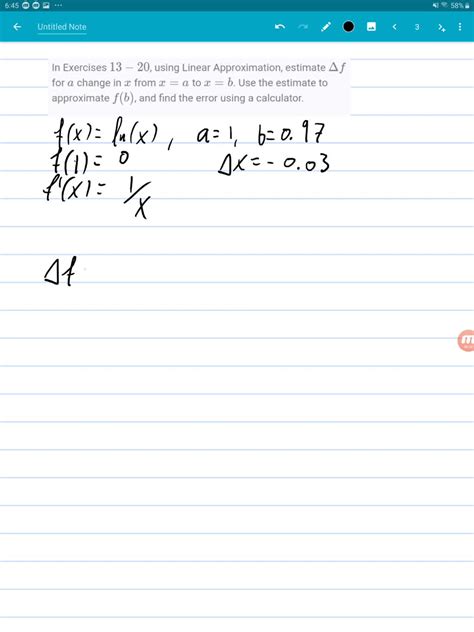 6:45 58%
Untitled Note 3
In Exercises 13 − 20, using Linear Approximation, estimate Δf
for a change in x from x = a to x = b. Use the estimate to
approximate f(b), and find the error using a calculator.
f(x) = ln(x), a = 1, b = 0.97
f(1) = 0 Δx = - 0.03
f'(x) = 1/x
Δf